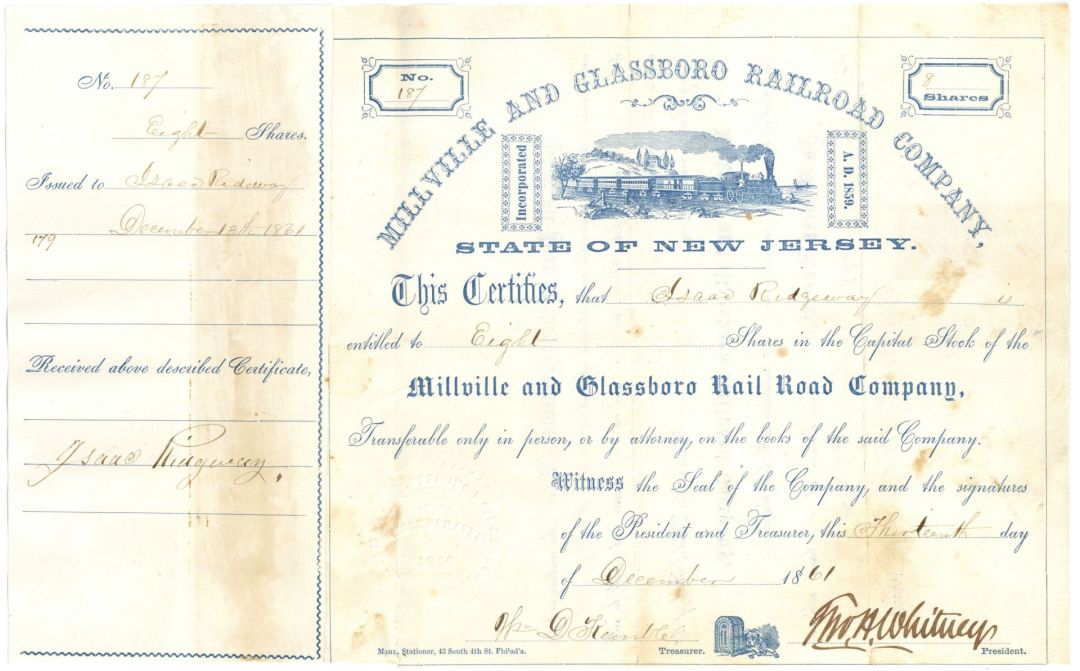 No. 187
Eight Shares.
Issued to Isaac Ridgway
December 13th 1861
179
Received above described Certificate,
Isaac Ridgway.
No.
187
8
Shares
MILLVILLE AND GLASSBORO RAILROAD COMPANY,
Incorporated
A. D. 1859.
STATE OF NEW JERSEY.
This Certifies, that Isaac Ridgeway is
entitled to Eight Shares in the Capital Stock of the
Millville and Glassboro Rail Road Company,
Transferable only in person, or by attorney, on the books of the said Company.
Witness the Seal of the Company, and the signatures
of the President and Treasurer, this Thirteenth day
of December 1861
Wm D Kemble Thos H. Whitney
Mann, Stationer, 43 South 4th St. Philad'a. Treasurer. President.